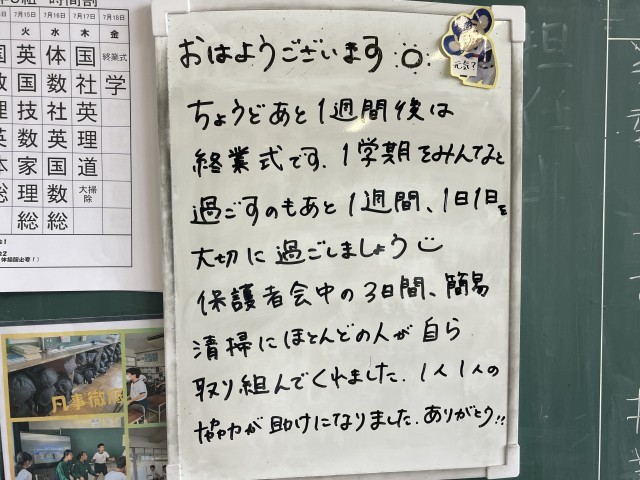 時間割
7月15日 7月16日 7月17日 7月18日
火 水 木 金
英 体 国 終業式
国 数 社 学
技 社 英
数 英 理
家 国 道
理 数 大掃除
総 総
おはようございます
元気？
ちょうどあと1週間後は
終業式です。1学期をみんなと
過ごすのもあと1週間、1日1日を
大切に過ごしましょう
保護者会中の3日間、簡易
清掃にほとんどの人が自ら
取り組んでくれました。1人1人の
協力が助けになりました。ありがとう!!
凡事徹底